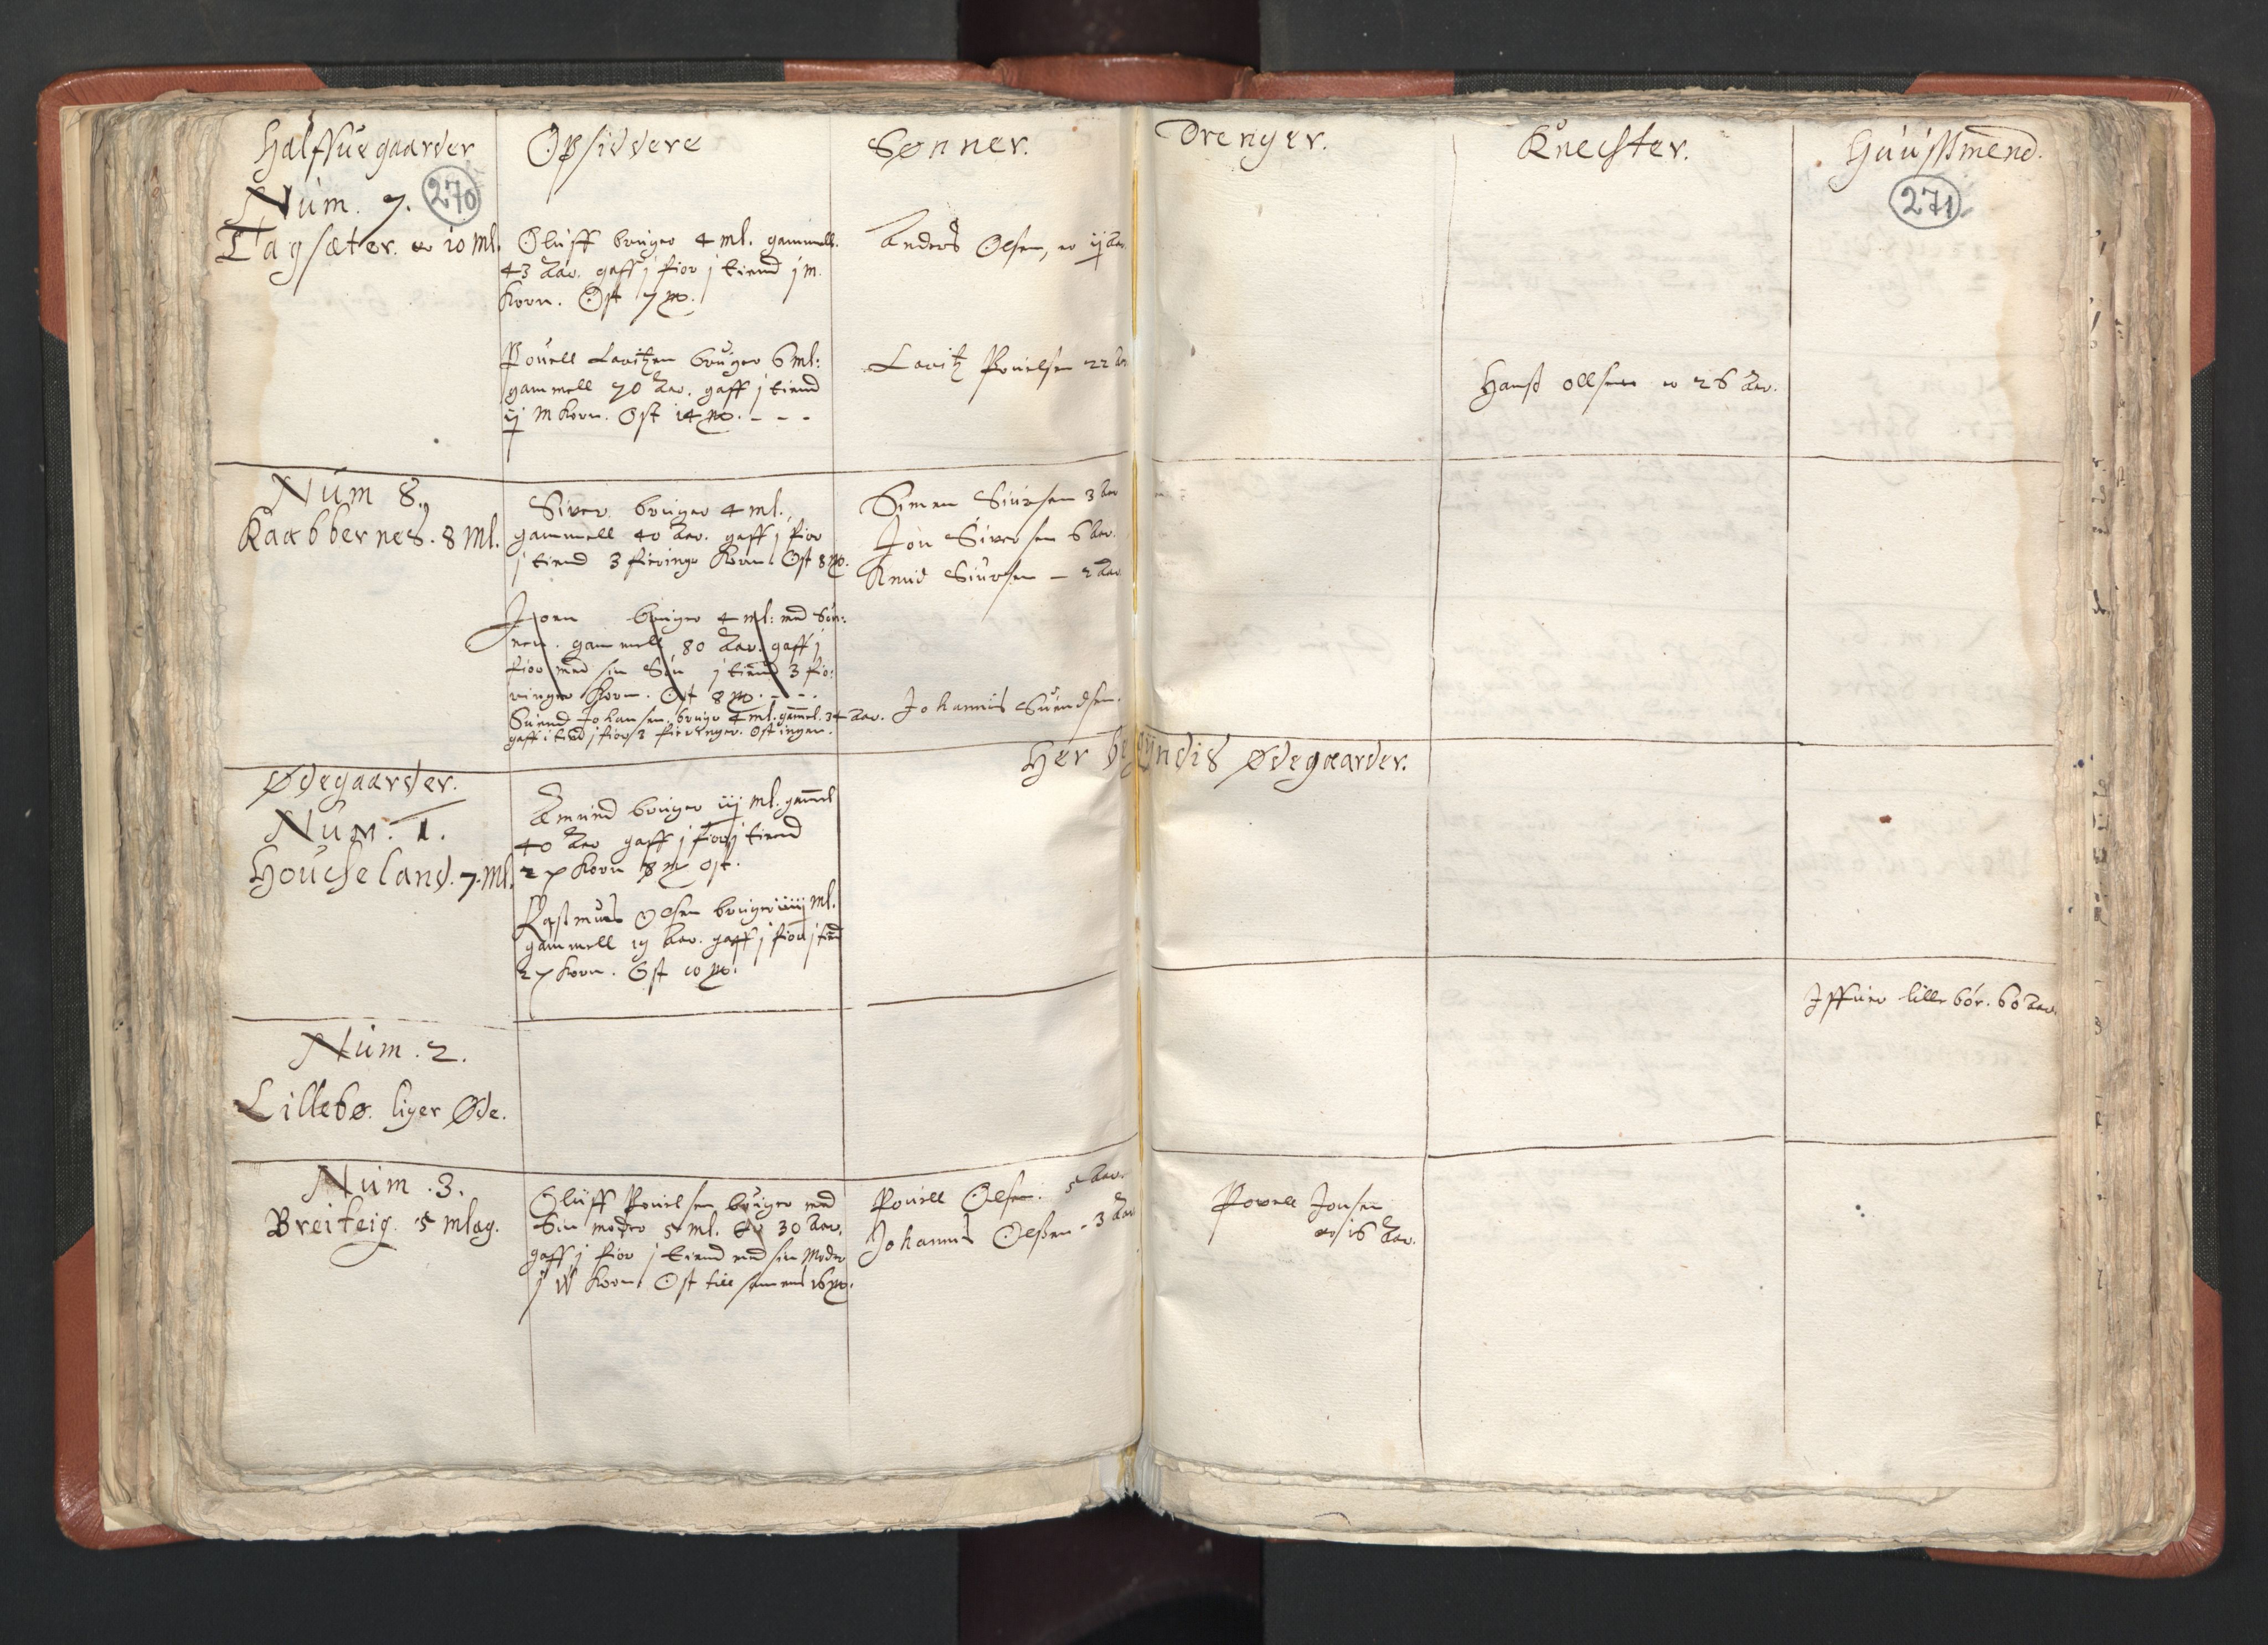 Halffuegaarder
Opsiddere
Sønner.
Drenger.
Knechter.
Huussmend.
Num. 7. 270
271
Tagsæter. er 10 ml.
Oluff bruger 4 ml. gammell
43 Aar. gaff j fior j tiend j m.
Korn. Ost 7
Anders Olsen, er ij Aar
Povell Lauritzen bruger 6 ml:
gammell 70 Aar. gaff j tiend
ij m korn. Ost 14 - - -
Lauritz Povelsen 22
Hanss ollsen er 26 Aar.
Num 8.
Kaabbernes. 8 ml.
Siver bruger 4 ml.
gammell 40 Aar. gaff j fior
j tiend 3 fieringr Korn Ost 8
Simen Siursen 3 Aar
Jon Siversen 6 Aar.
Knud Siursen - 2 Aar
Joen bruger 4 ml: med Søn:
nen. gammell 80 Aar. gaff j
fior med sin Søn j tiend 3 fie:
ringer Korn. Ost 8 - - -
Suend Johansen bruger 4 ml. gamel. 34 Aar.
gaff i tiend j fior 3 fieringer. Ost ingen.
Johannis Suendsen.
Her begyndis Ødegaarder.
Ødegaarder.
Num. 1.
Houcheland. 7. ml.
Amund bruger iij ml. gamel
40 Aar gaff j fior j tiend
2 korn 8 ost.
Rassmus Olsen bruger iiij ml.
gammell 19 Aar. gaff j fior j tiend
2 korn. Ost 10
Num. 2.
Lillebø. liger Øde.
Iffuer lillebør. 60 Aar.
Num. 3.
Breiteig. 5 mlag.
Oluff Povelsen bruger med
sin moder 5 ml. er 30 Aar.
gaff j fior j tiend med sin Moder
j Korn Ost till samens 16
Povell Olsen. 5 Aar.
Johannis Olsen - 3 Aar
Povell Jonsen
er 16 Aar.